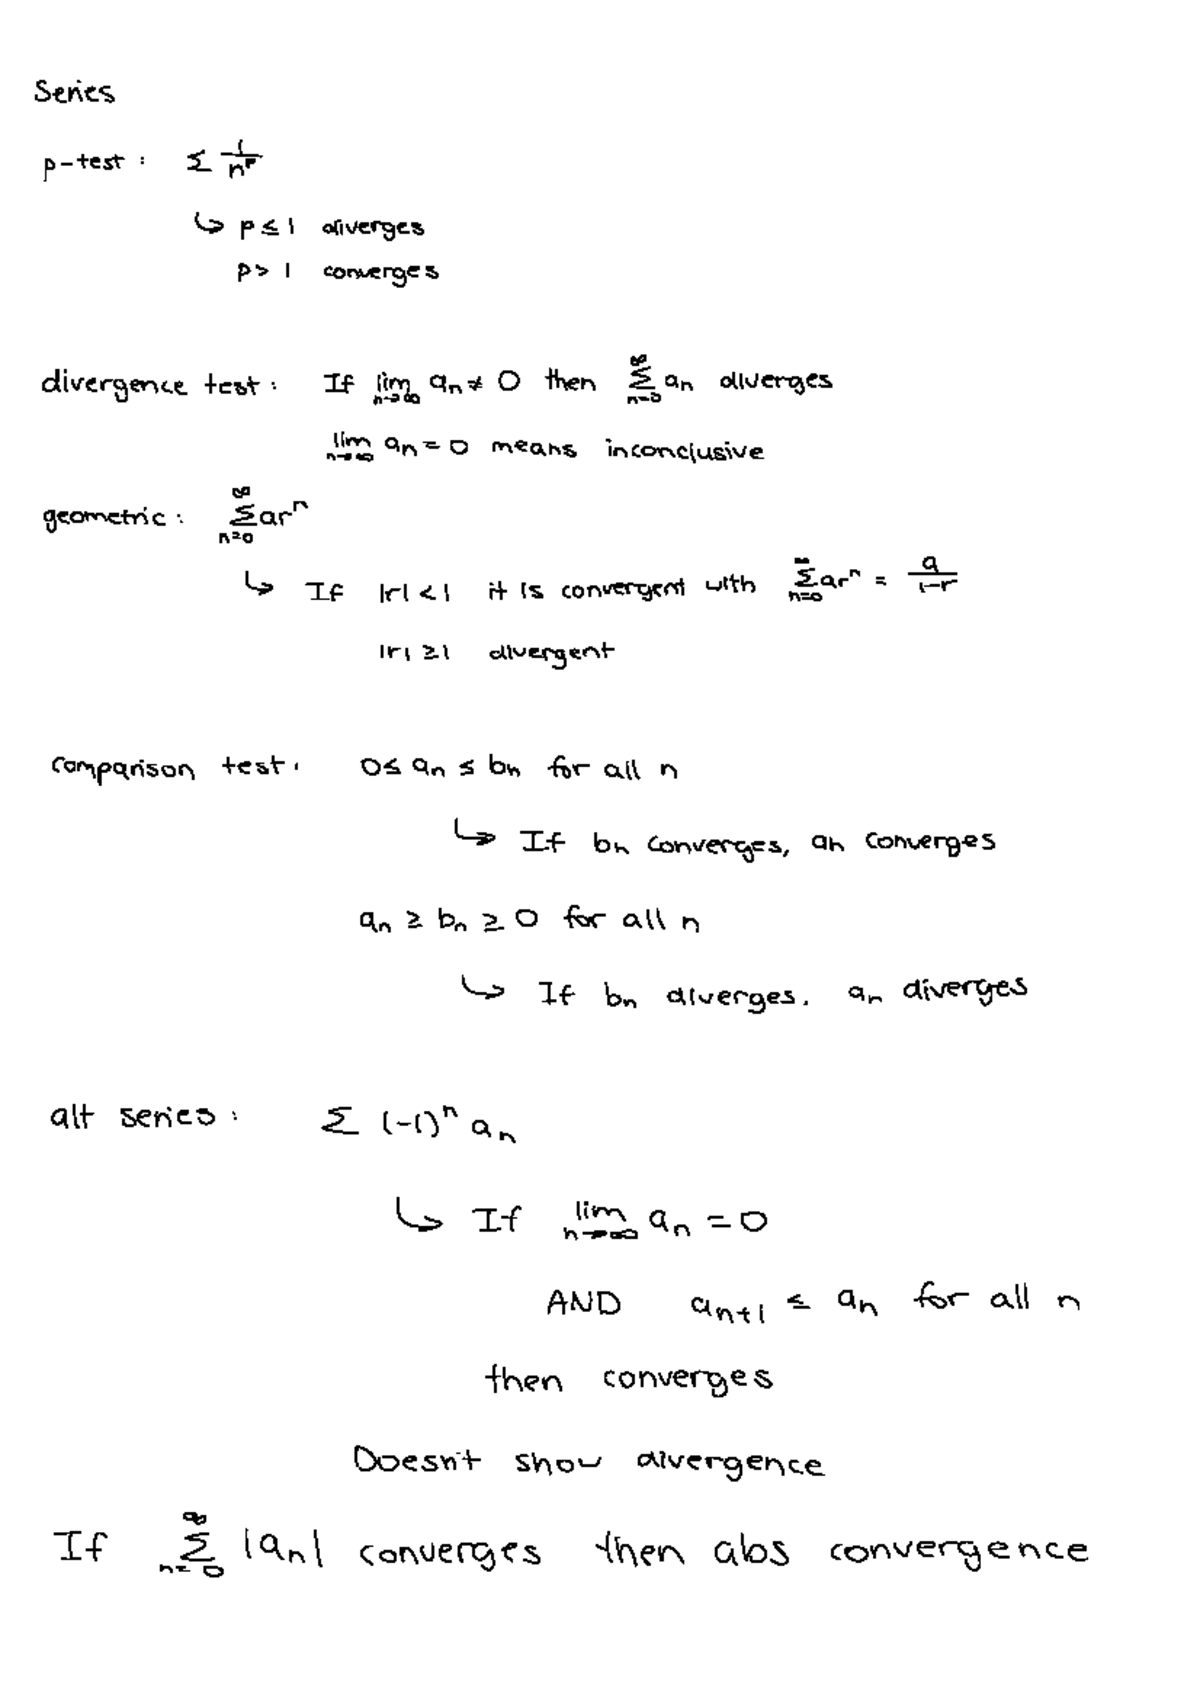 Series
p-test : Σ 1/n^p
↳ p ≤ 1 diverges
p > 1 converges
divergence test : If lim n→∞ aₙ ≠ 0 then ∞ Σ n=0 aₙ diverges
lim n→∞ aₙ = 0 means inconclusive
geometric : ∞ Σ n=0 arⁿ
↳ If |r| < 1 it is convergent with ∞ Σ n=0 arⁿ = a/1-r
|r| ≥ 1 divergent
comparison test : 0 ≤ aₙ ≤ bₙ for all n
↳ If bₙ converges, aₙ converges
aₙ ≥ bₙ ≥ 0 for all n
↳ If bₙ diverges. aₙ diverges
alt series : Σ (-1)ⁿ aₙ
↳ If lim n→∞ aₙ = 0
AND aₙ₊₁ ≤ aₙ for all n
then converges
Doesn't show divergence
If ∞ Σ n=0 |aₙ| converges then abs convergence